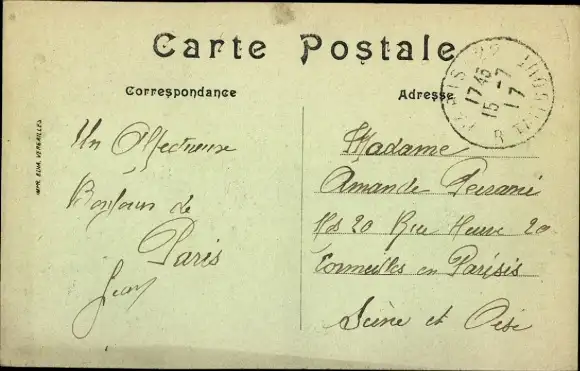 Carte Postale
Correspondance
Adresse
PARIS 22
17 45
15 - 7
17
IMP. EDIA. VERSAILLES
Un Affectueux
Bonjour de
Paris
Jean
Madame
Amande
20 Rue 20
Cormeilles en Parisis
Seine et Oise